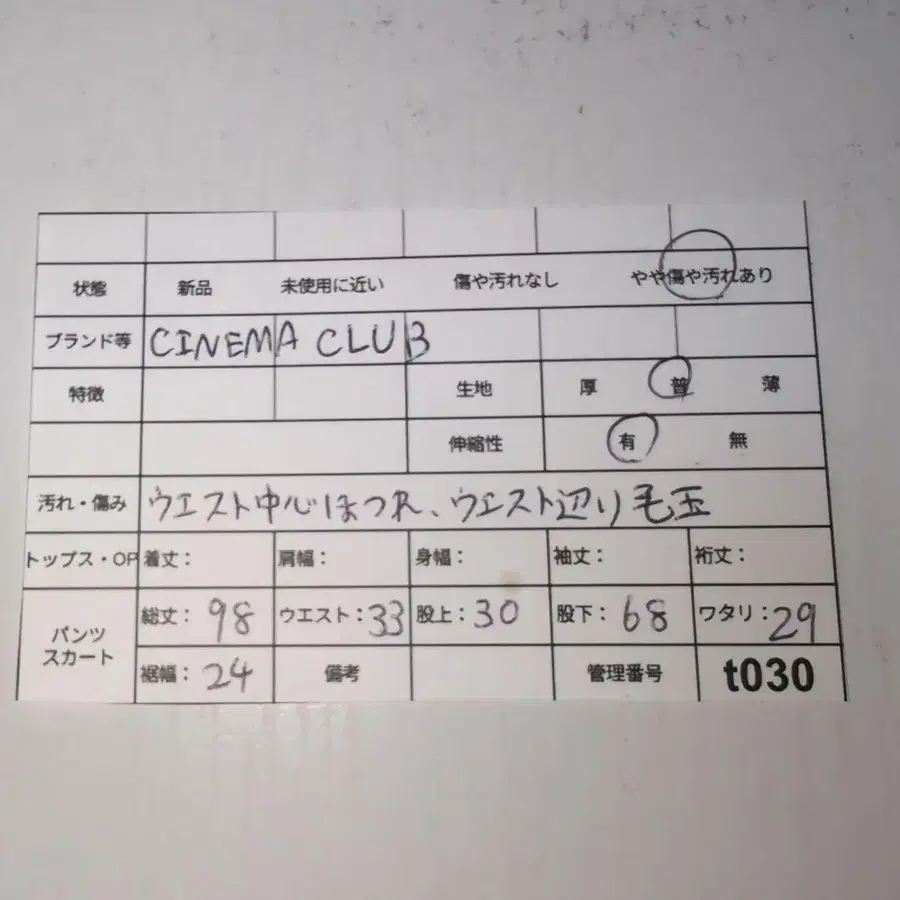 状態 新品 未使用に近い 傷や汚れなし やや傷や汚れあり
ブランド等 CINEMA CLUB
特徴 生地 厚 普 薄
伸縮性 有 無
汚れ・傷み ウエスト中心ほつれ、ウエスト辺り毛玉
トップス・OP 着丈: 肩幅: 身幅: 袖丈: 裄丈:
パンツ スカート 総丈: 98 ウエスト: 33 股上: 30 股下: 68 ワタリ: 29
裾幅: 24 備考 管理番号 t030